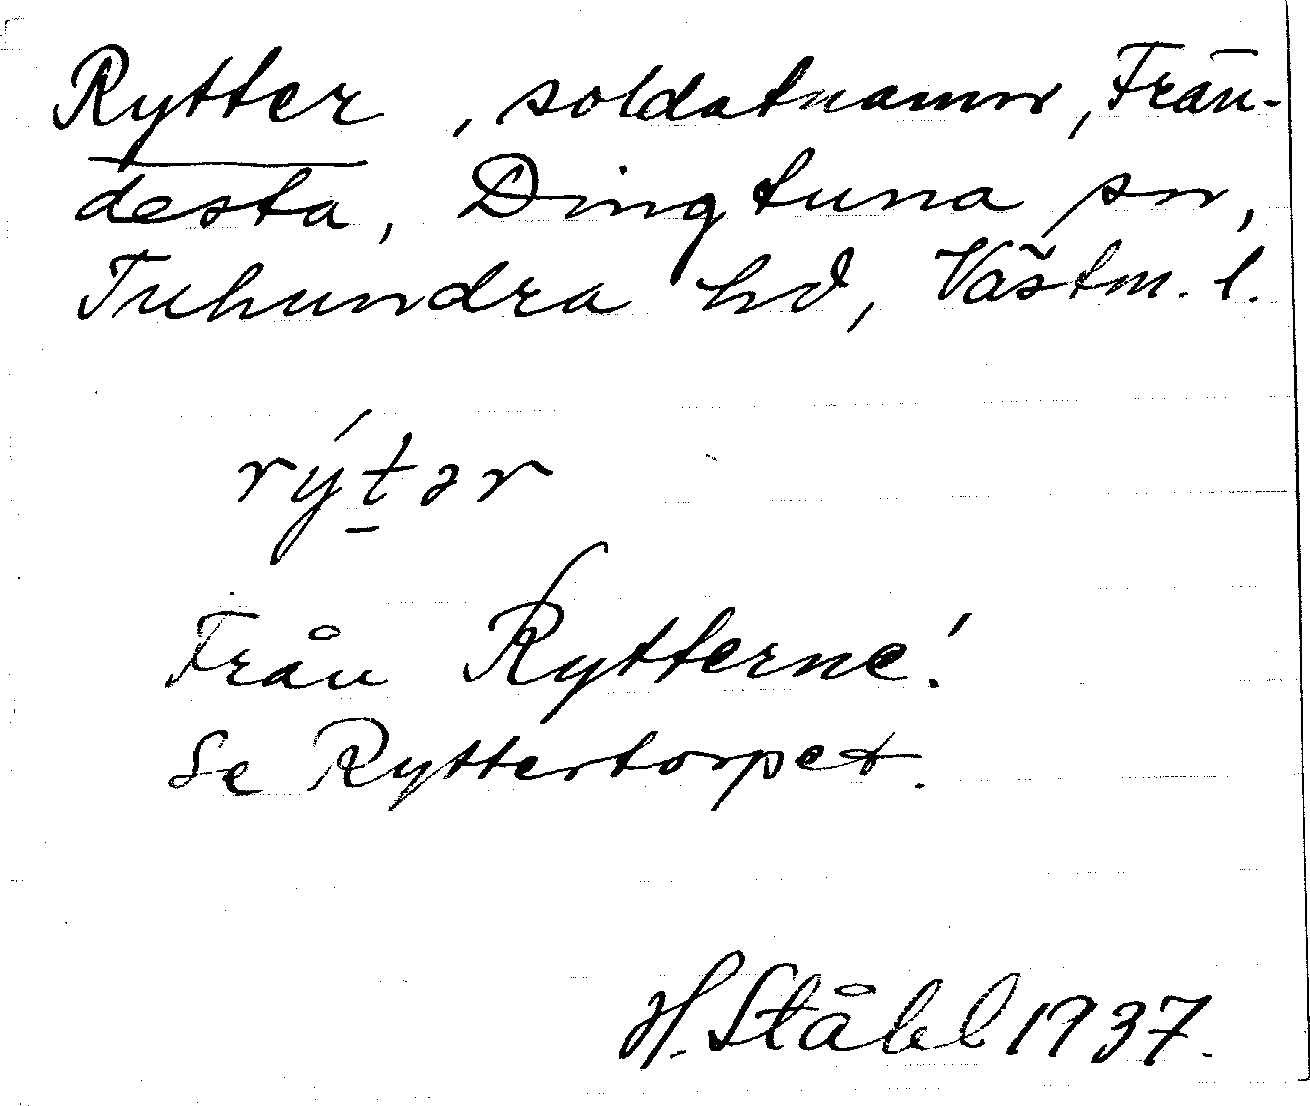 Rytter, soldatnamn, Frän-
desta, Dingtuna sn,
Tuhundra hd, Västm. l.
rýt̠ər
Från Rytterne!
Se Ryttertorpet.
H. Ståhl 1937.